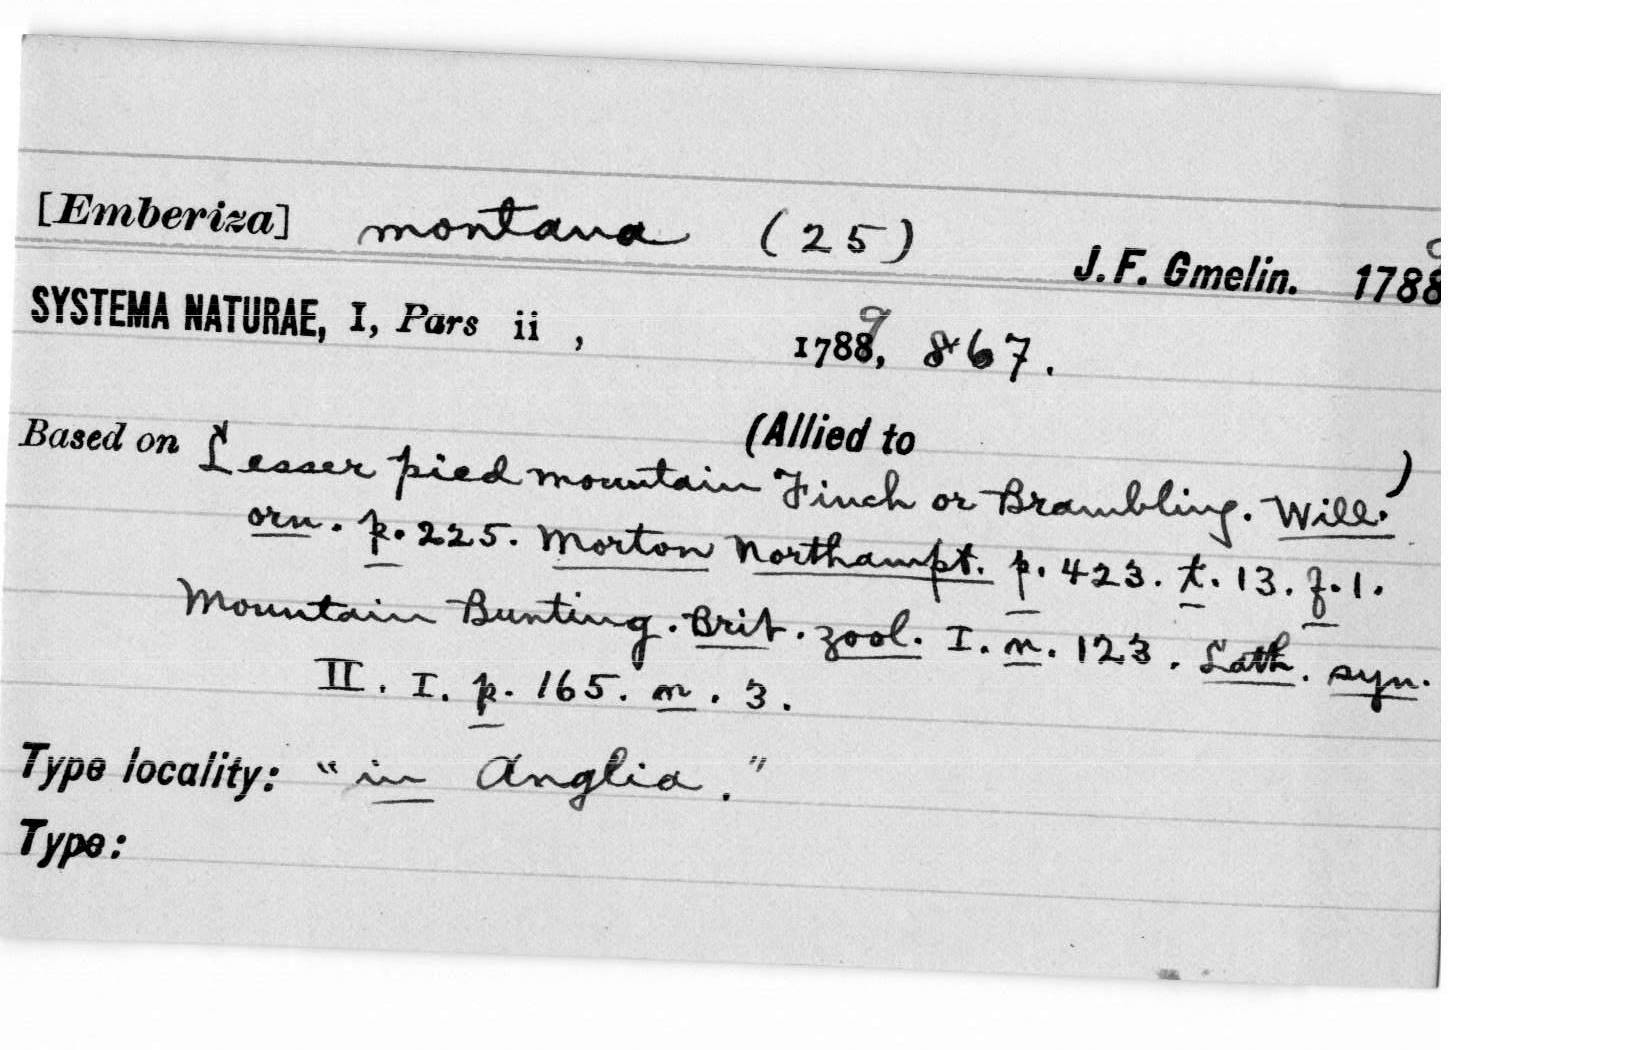 [Emberiza] montana (25)
J. F. Gmelin. 1788
SYSTEMA NATURAE, I, Pars ii , 17889, 867.
Based on (Allied to )
Lesser pied mountain Finch or Brambling. Will.
orn. p. 225. Morton Northampt. p. 423. t. 13. f. 1.
Mountain Bunting. Brit. zool. I. n. 123. Lath. syn.
II. I. p. 165. n. 3.
Type locality: "in Anglia."
Type: